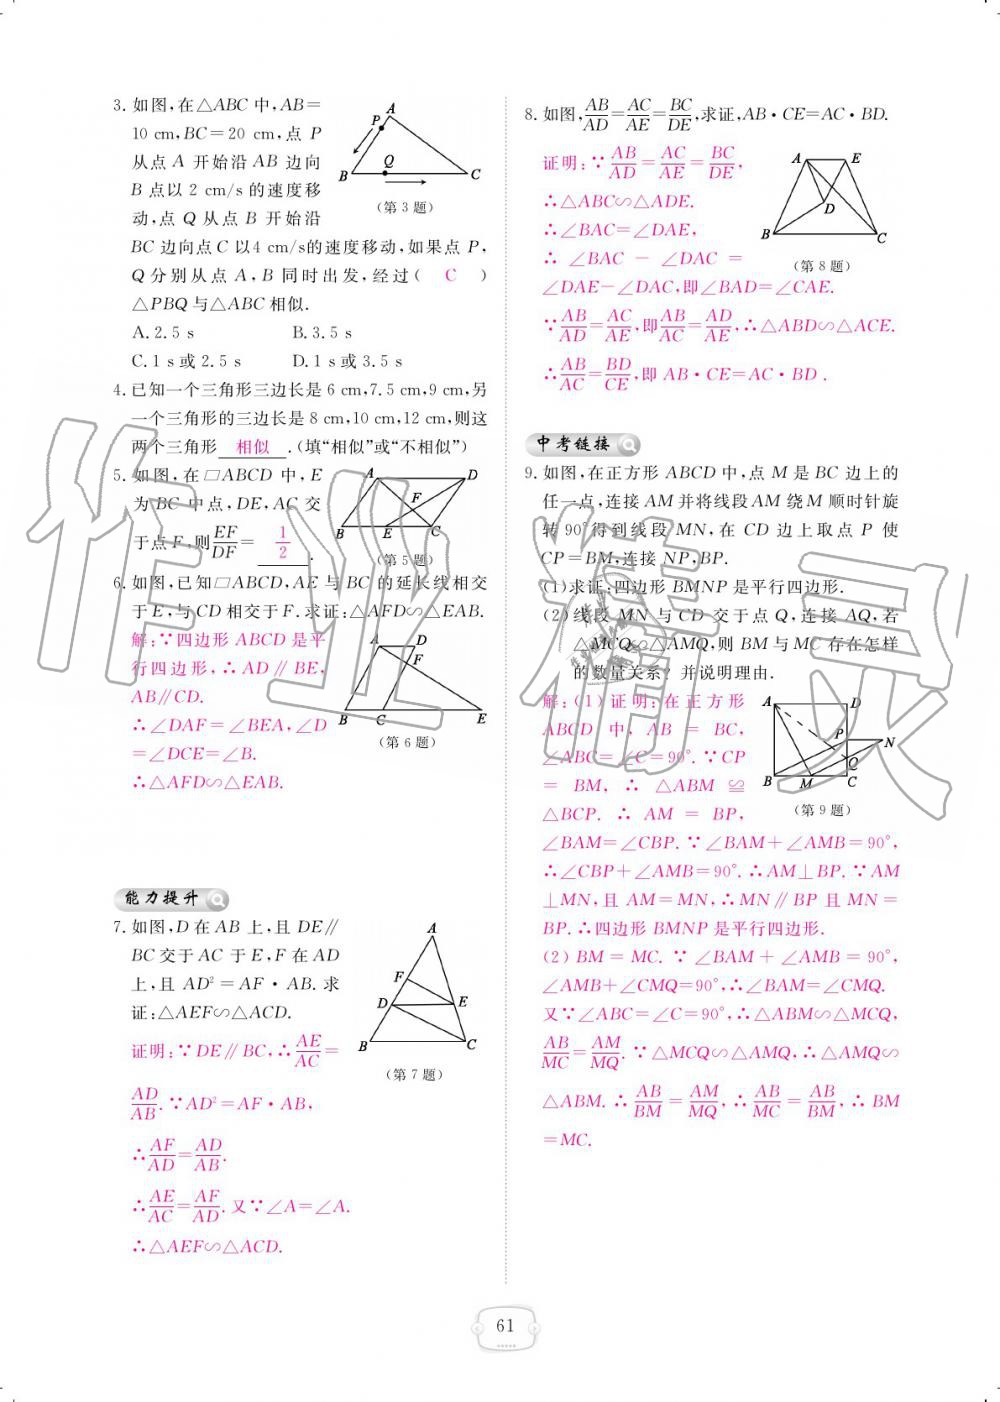 3. 如图,在△ABC 中,AB=
10 cm,BC=20 cm,点 P
从点 A 开始沿 AB 边向
B 点以 2 cm/s 的速度移
动,点 Q 从点 B 开始沿
BC 边向点 C 以4 cm/s的速度移动,如果点 P,
Q 分别从点 A,B 同时出发,经过( C )
△PBQ 与△ABC 相似.
A. 2.5 s B. 3.5 s
C. 1 s 或 2.5 s D. 1 s 或 3.5 s
A P Q B C
(第 3 题)
4. 已知一个三角形三边长是 6 cm,7.5 cm,9 cm,另
一个三角形的三边长是 8 cm,10 cm,12 cm,则这
两个三角形 相似 .(填“相似”或“不相似”)
5. 如图,在 □ABCD 中,E
为 BC 中点,DE,AC 交
于点 F,则EF/DF= 1/2 .
A D F B E C
(第 5 题)
6. 如图,已知□ABCD,AE 与 BC 的延长线相交
于 E,与 CD 相交于 F. 求证:△AFD∽△EAB.
解:∵四边形 ABCD 是平
行四边形,∴AD∥BE,
AB∥CD.
∴∠DAF=∠BEA,∠D
=∠DCE=∠B.
∴△AFD∽△EAB.
A D F B C E
(第 6 题)
能力提升
7. 如图,D 在 AB 上,且 DE∥
BC 交于 AC 于 E,F 在 AD
上,且 AD²=AF·AB. 求
证:△AEF∽△ACD.
证明:∵DE∥BC,∴AE/AC=
AD/AB.∵AD²=AF·AB,
∴AF/AD=AD/AB.
∴AE/AC=AF/AD.又∵∠A=∠A.
∴△AEF∽△ACD.
A F D E B C
(第 7 题)
8. 如图,AB/AD=AC/AE=BC/DE,求证,AB·CE=AC·BD.
证明:∵AB/AD=AC/AE=BC/DE,
∴△ABC∽△ADE.
∴∠BAC=∠DAE,
∴ ∠BAC - ∠DAC =
∠DAE-∠DAC,即∠BAD=∠CAE.
∵AB/AD=AC/AE,即AB/AC=AD/AE,∴△ABD∽△ACE.
∴AB/AC=BD/CE,即 AB·CE=AC·BD .
A E D B C
(第 8 题)
中考链接
9. 如图,在正方形 ABCD 中,点 M 是 BC 边上的
任一点,连接 AM 并将线段 AM 绕 M 顺时针旋
转 90°得到线段 MN,在 CD 边上取点 P 使
CP=BM,连接 NP,BP.
(1)求证:四边形 BMNP 是平行四边形.
(2)线段 MN 与 CD 交于点 Q,连接 AQ,若
△MCQ∽△AMQ,则 BM 与 MC 存在怎样
的数量关系?并说明理由.
解:(1)证明:在正方形
ABCD 中,AB = BC,
∠ABC=∠C=90°.∵CP
= BM,∴ △ABM ≌
△BCP. ∴ AM = BP,
∠BAM=∠CBP.∵∠BAM+∠AMB=90°,
∴∠CBP+∠AMB=90°.∴AM⊥BP.∵AM
⊥MN,且 AM=MN,∴MN∥BP 且 MN=
BP.∴四边形 BMNP 是平行四边形.
(2) BM = MC. ∵ ∠BAM + ∠AMB = 90°,
∠AMB+∠CMQ=90°,∴∠BAM=∠CMQ.
又∵∠ABC=∠C=90°,∴△ABM∽△MCQ,
AB/MC=AM/MQ.∵△MCQ∽△AMQ,∴△AMQ∽
△ABM.∴AB/BM=AM/MQ,∴AB/MC=AB/BM,∴BM
=MC.
A D P N Q B M C
(第 9 题)
61
作业精灵